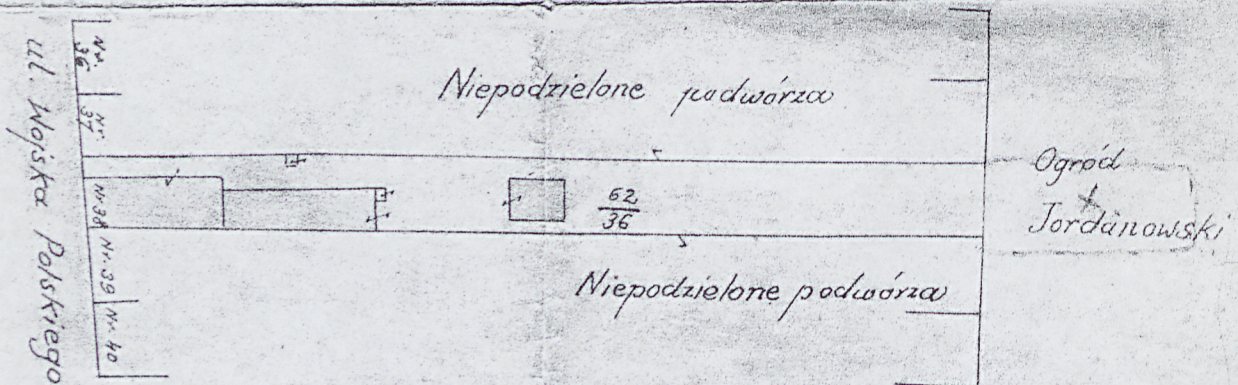 ul. Wojska Polskiego
Nr. 36
Nr. 37
Nr 38
Nr. 39
Nr. 40
Niepodzielone podwórza
62
36
Niepodzielone podwórza
Ogród
Jordanowski